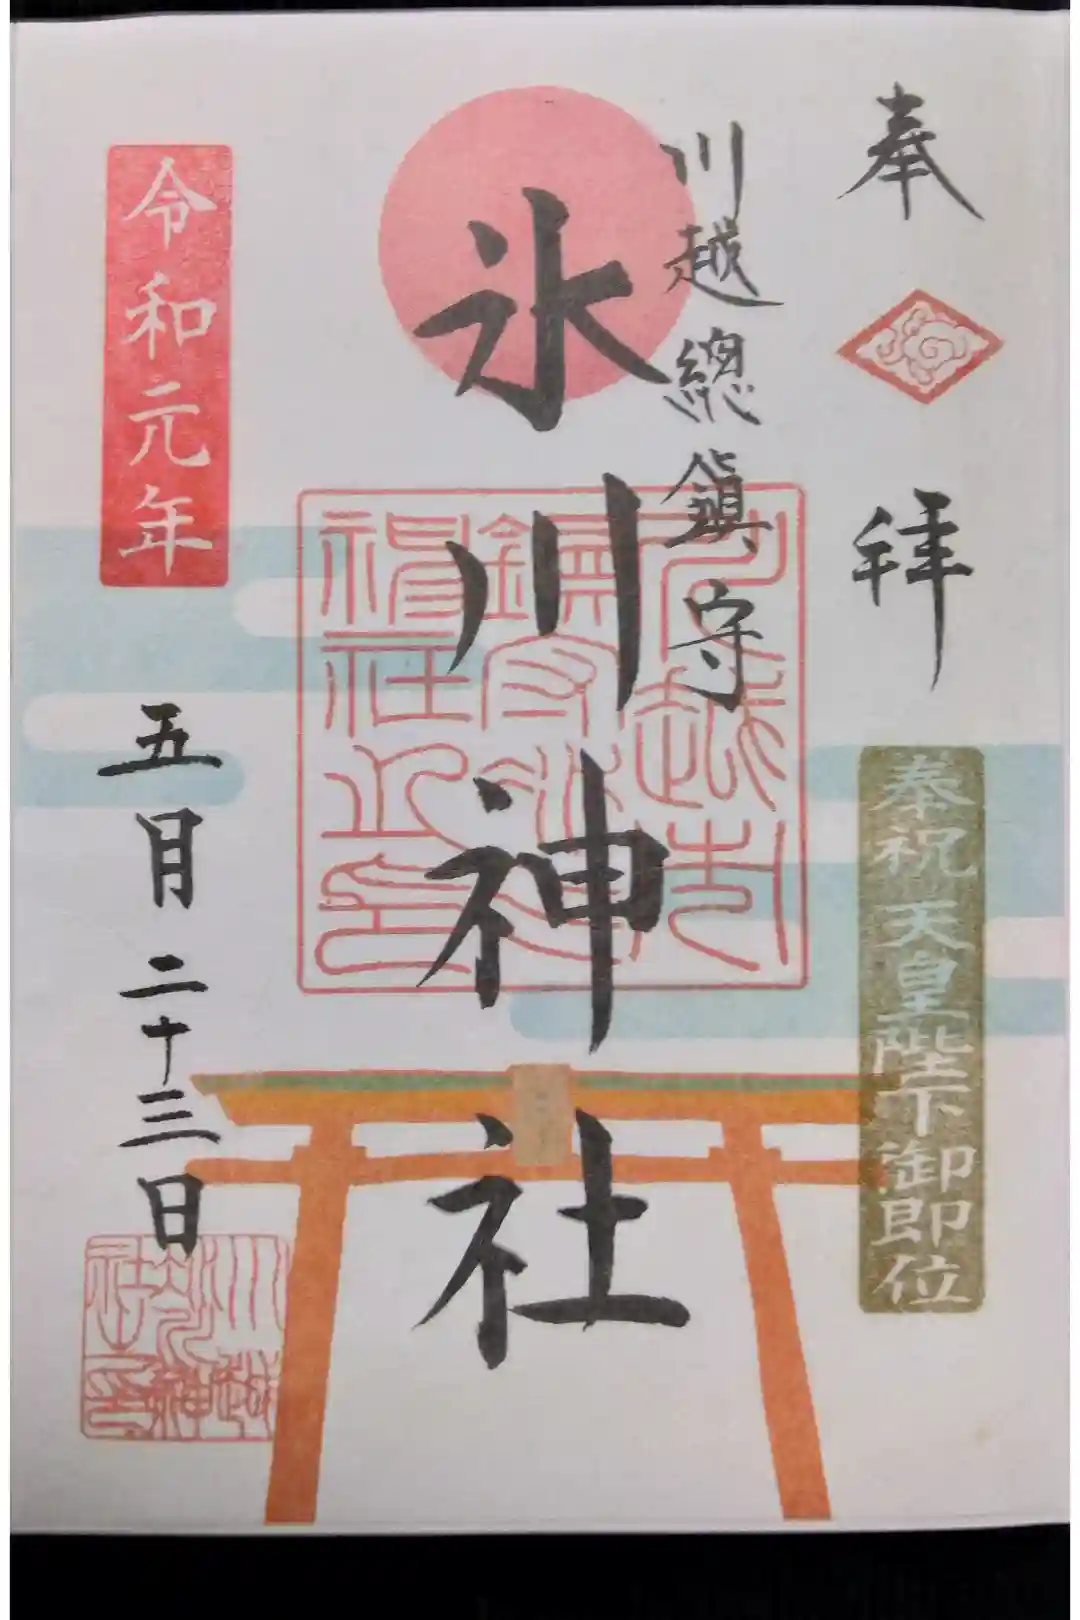 奉拝
奉祝天皇陛下御即位
川越總鎮守
氷川神社
令和元年
五月二十三日